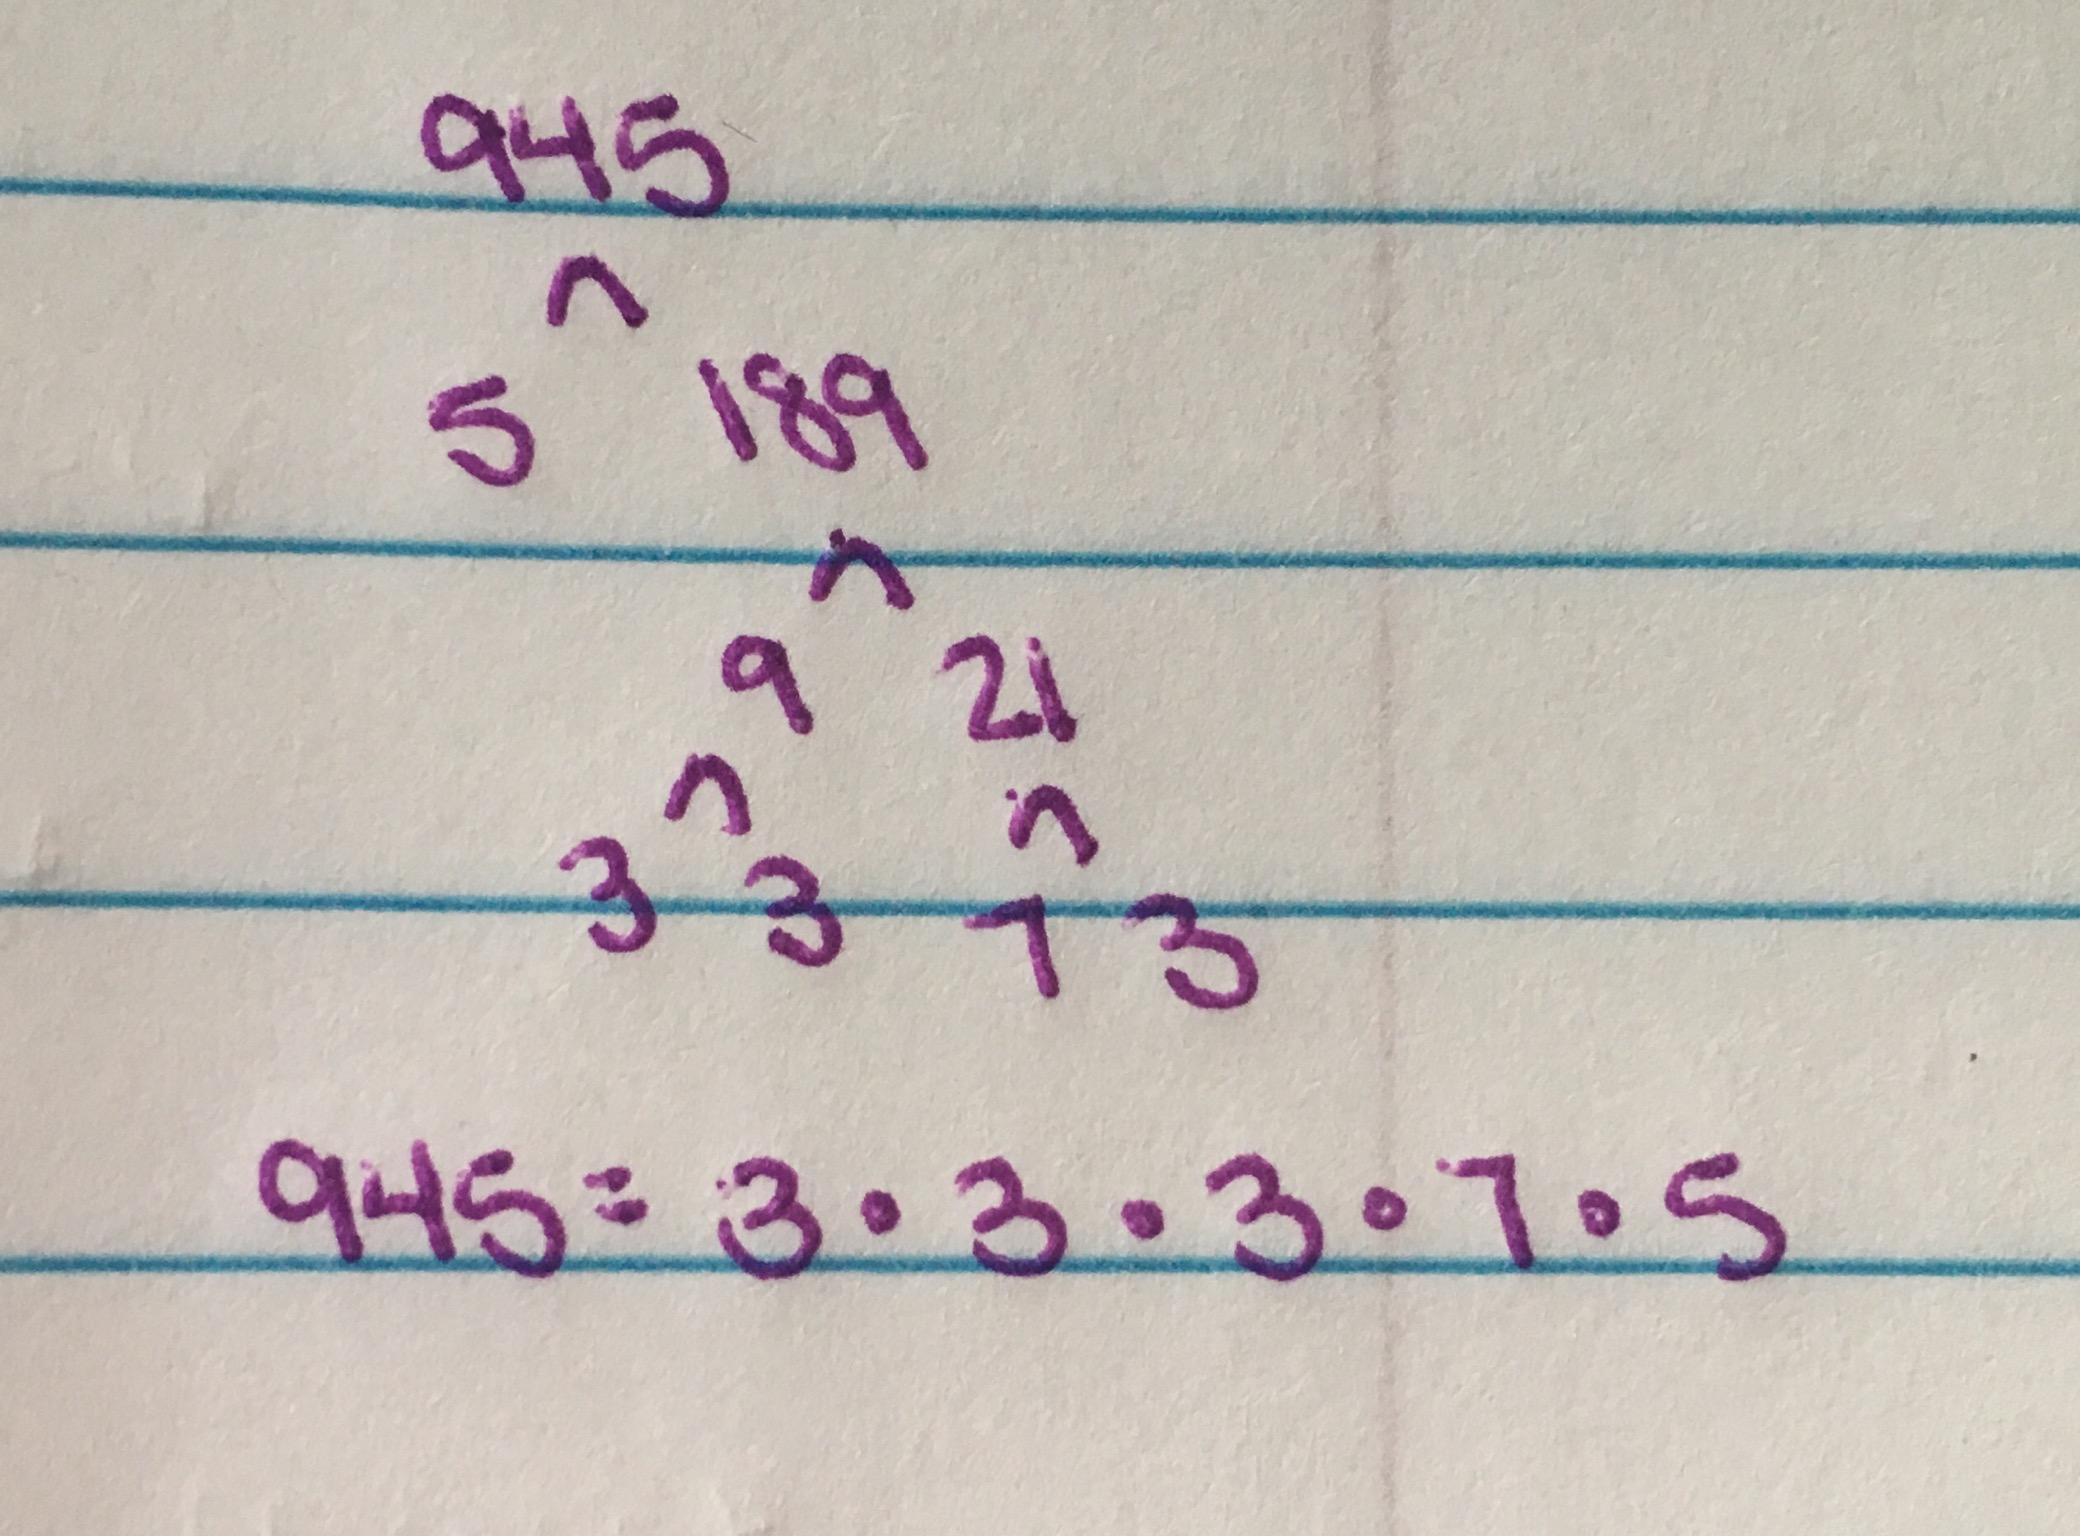 945
5 189
9 21
3 3 7 3
945 = 3 • 3 • 3 • 7 • 5